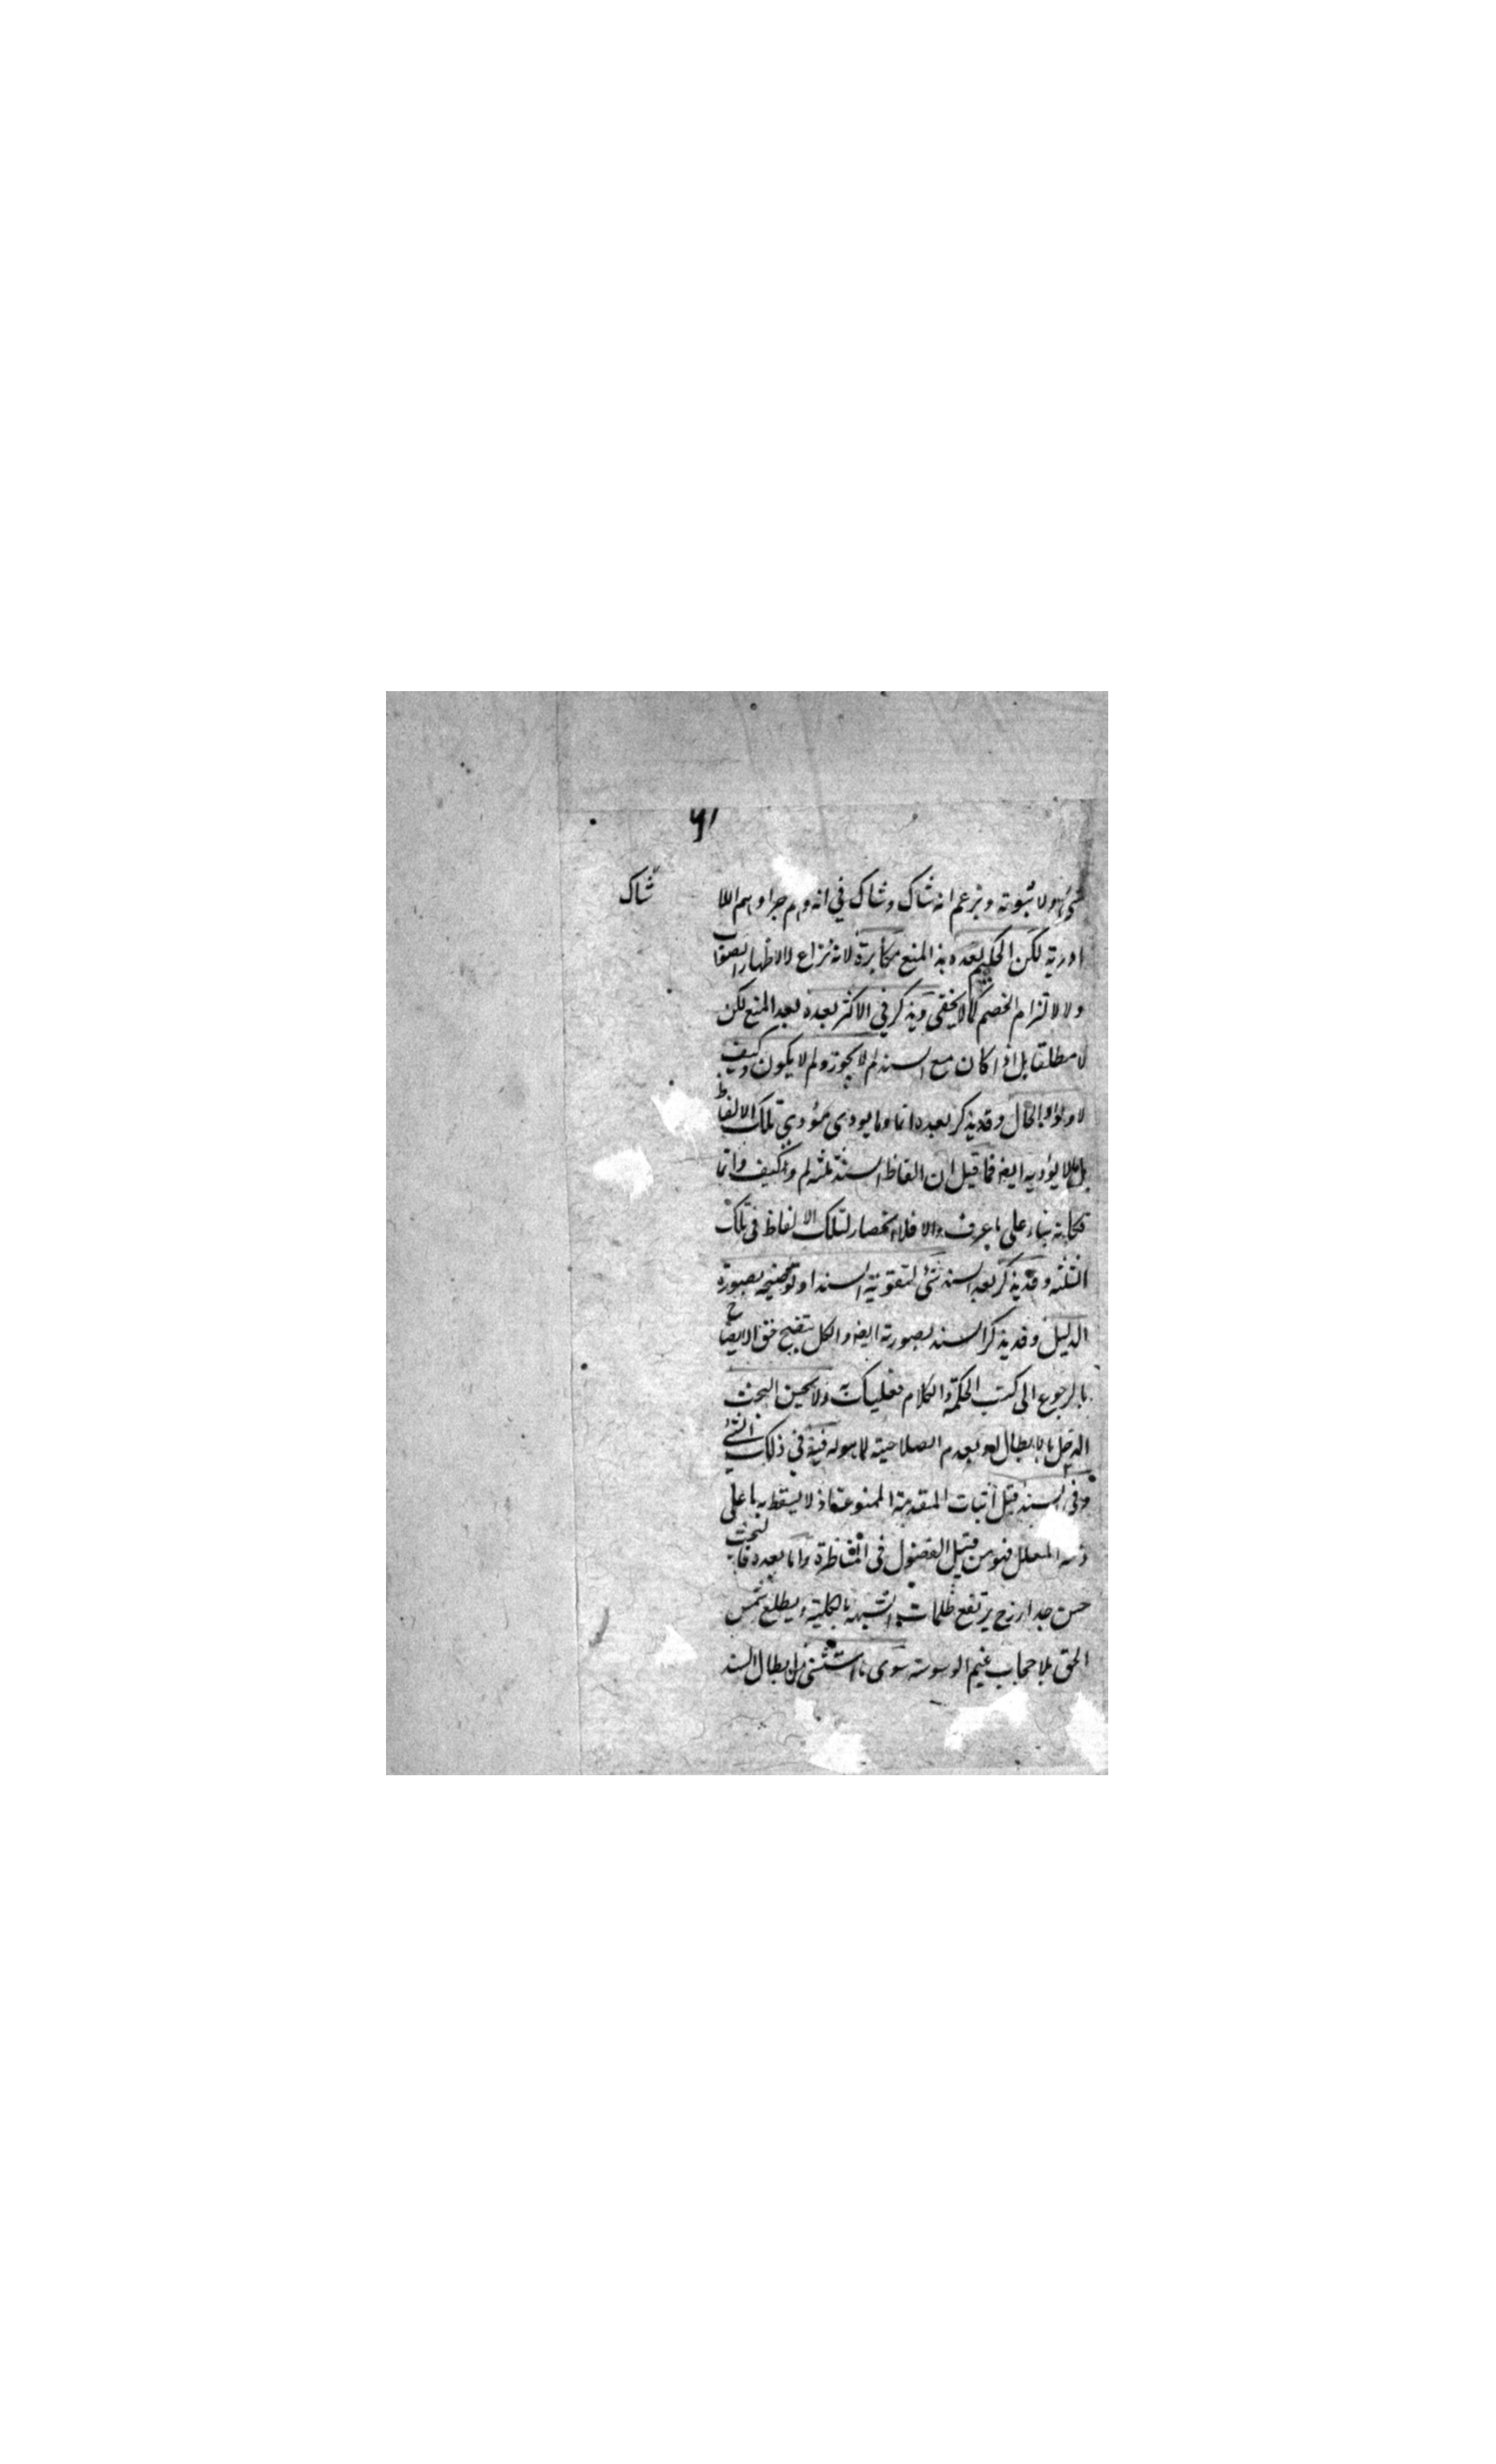 ۶۱
شئ ولا ثبوته ويزعم انه شاك وشاك في انه وهم جرا وهم اللا
شاك
ادرية لكن الحكيم يعد هذ المنع مكابرة لانه نزاع لا لاظهار الصواب
ولا لالتزام الخصم كما لا يخفى ويذكر في الاكثر بعده بعد المنع لكن
لا مطلقا بل اذا كان مع السند لم لا يجوز ولم لا يكون وكيف
لا والواو للحال وقد يذكر بعده انما وما يودى مؤدى تلك الالفاظ
بل ما لا يؤديه ايضا فما قيل ان الفاظ السند ثلثه لم وكيف وانما
فكانه بناء على ما عرف والا فلا انحصار لتلك الالفاظ في تلك
الثلثه وقد يذكر بعد السند شئ لتقوية السند او لتوضيحه بصورة
الدليل وقد يذكر السند بصورته ايضا والكل يتضح حق الايضاح
بالرجوع الى كتب الحكمة والكلام فعليك به ولا يحسن البحث
الدخل بالابطال او بعدم الصلاحية لما هو له فيه في ذلك الشئ
وفي السند قبل اثبات المقدمة الممنوعة اذ لا يسقط به ما على
ذمه المعلل فهو من قبيل الفضول في المناظرة واما بعده فالبحث
حسن جدا اذ ح يرتفع ظلمات الشبهة بالكلية ويطلع شمس
الحق بلا حجاب غيم الوسوسة سوى ما استثنى من ابطال السند